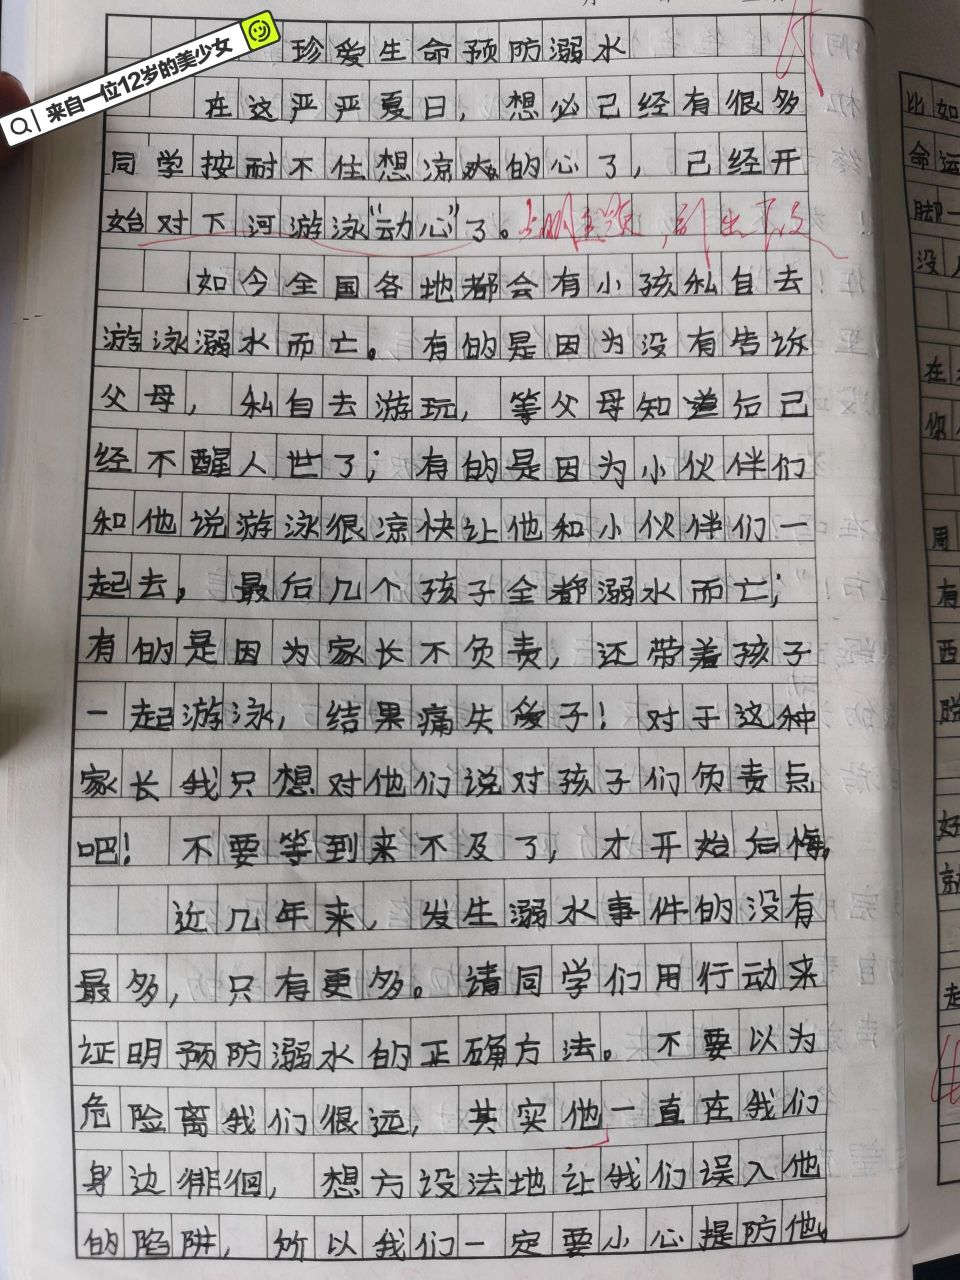 珍爱生命预防溺水
来自一位12岁的美少女
在这严严夏日，想必已经有很多
同学按耐不住想凉爽的心了，已经开
始对下河游泳“动心”了。点明主题，引出下文
如今全国各地都会有小孩私自去
游泳溺水而亡。有的是因为没有告诉
父母，私自去游玩，等父母知道后已
经不醒人世了；有的是因为小伙伴们
和他说游泳很凉快让他和小伙伴们一
起去，最后几个孩子全都溺水而亡；
有的是因为家长不负责，还带着孩子
一起游泳，结果痛失爱子！对于这种
家长我只想对他们说对孩子们负责点
吧！不要等到来不及了，才开始后悔，
近几年来，发生溺水事件的没有
最多，只有更多。请同学们用行动来
证明预防溺水的正确方法。不要以为
危险离我们很远，其实他一直在我们
身边徘徊，想方设法地让我们误入他
的陷阱，所以我们一定要小心提防他。
比如
命运
脚一
没人
在
你
周
有
西
脸
好